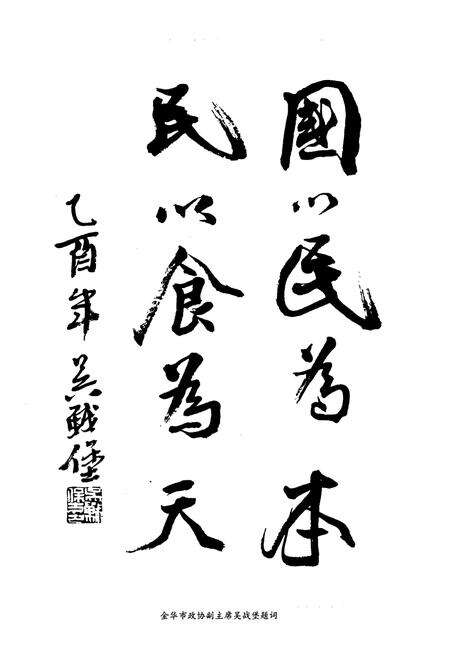 國以民為本
民以食為天
乙酉年 吴戰堡
金华市政协副主席吴战堡题词